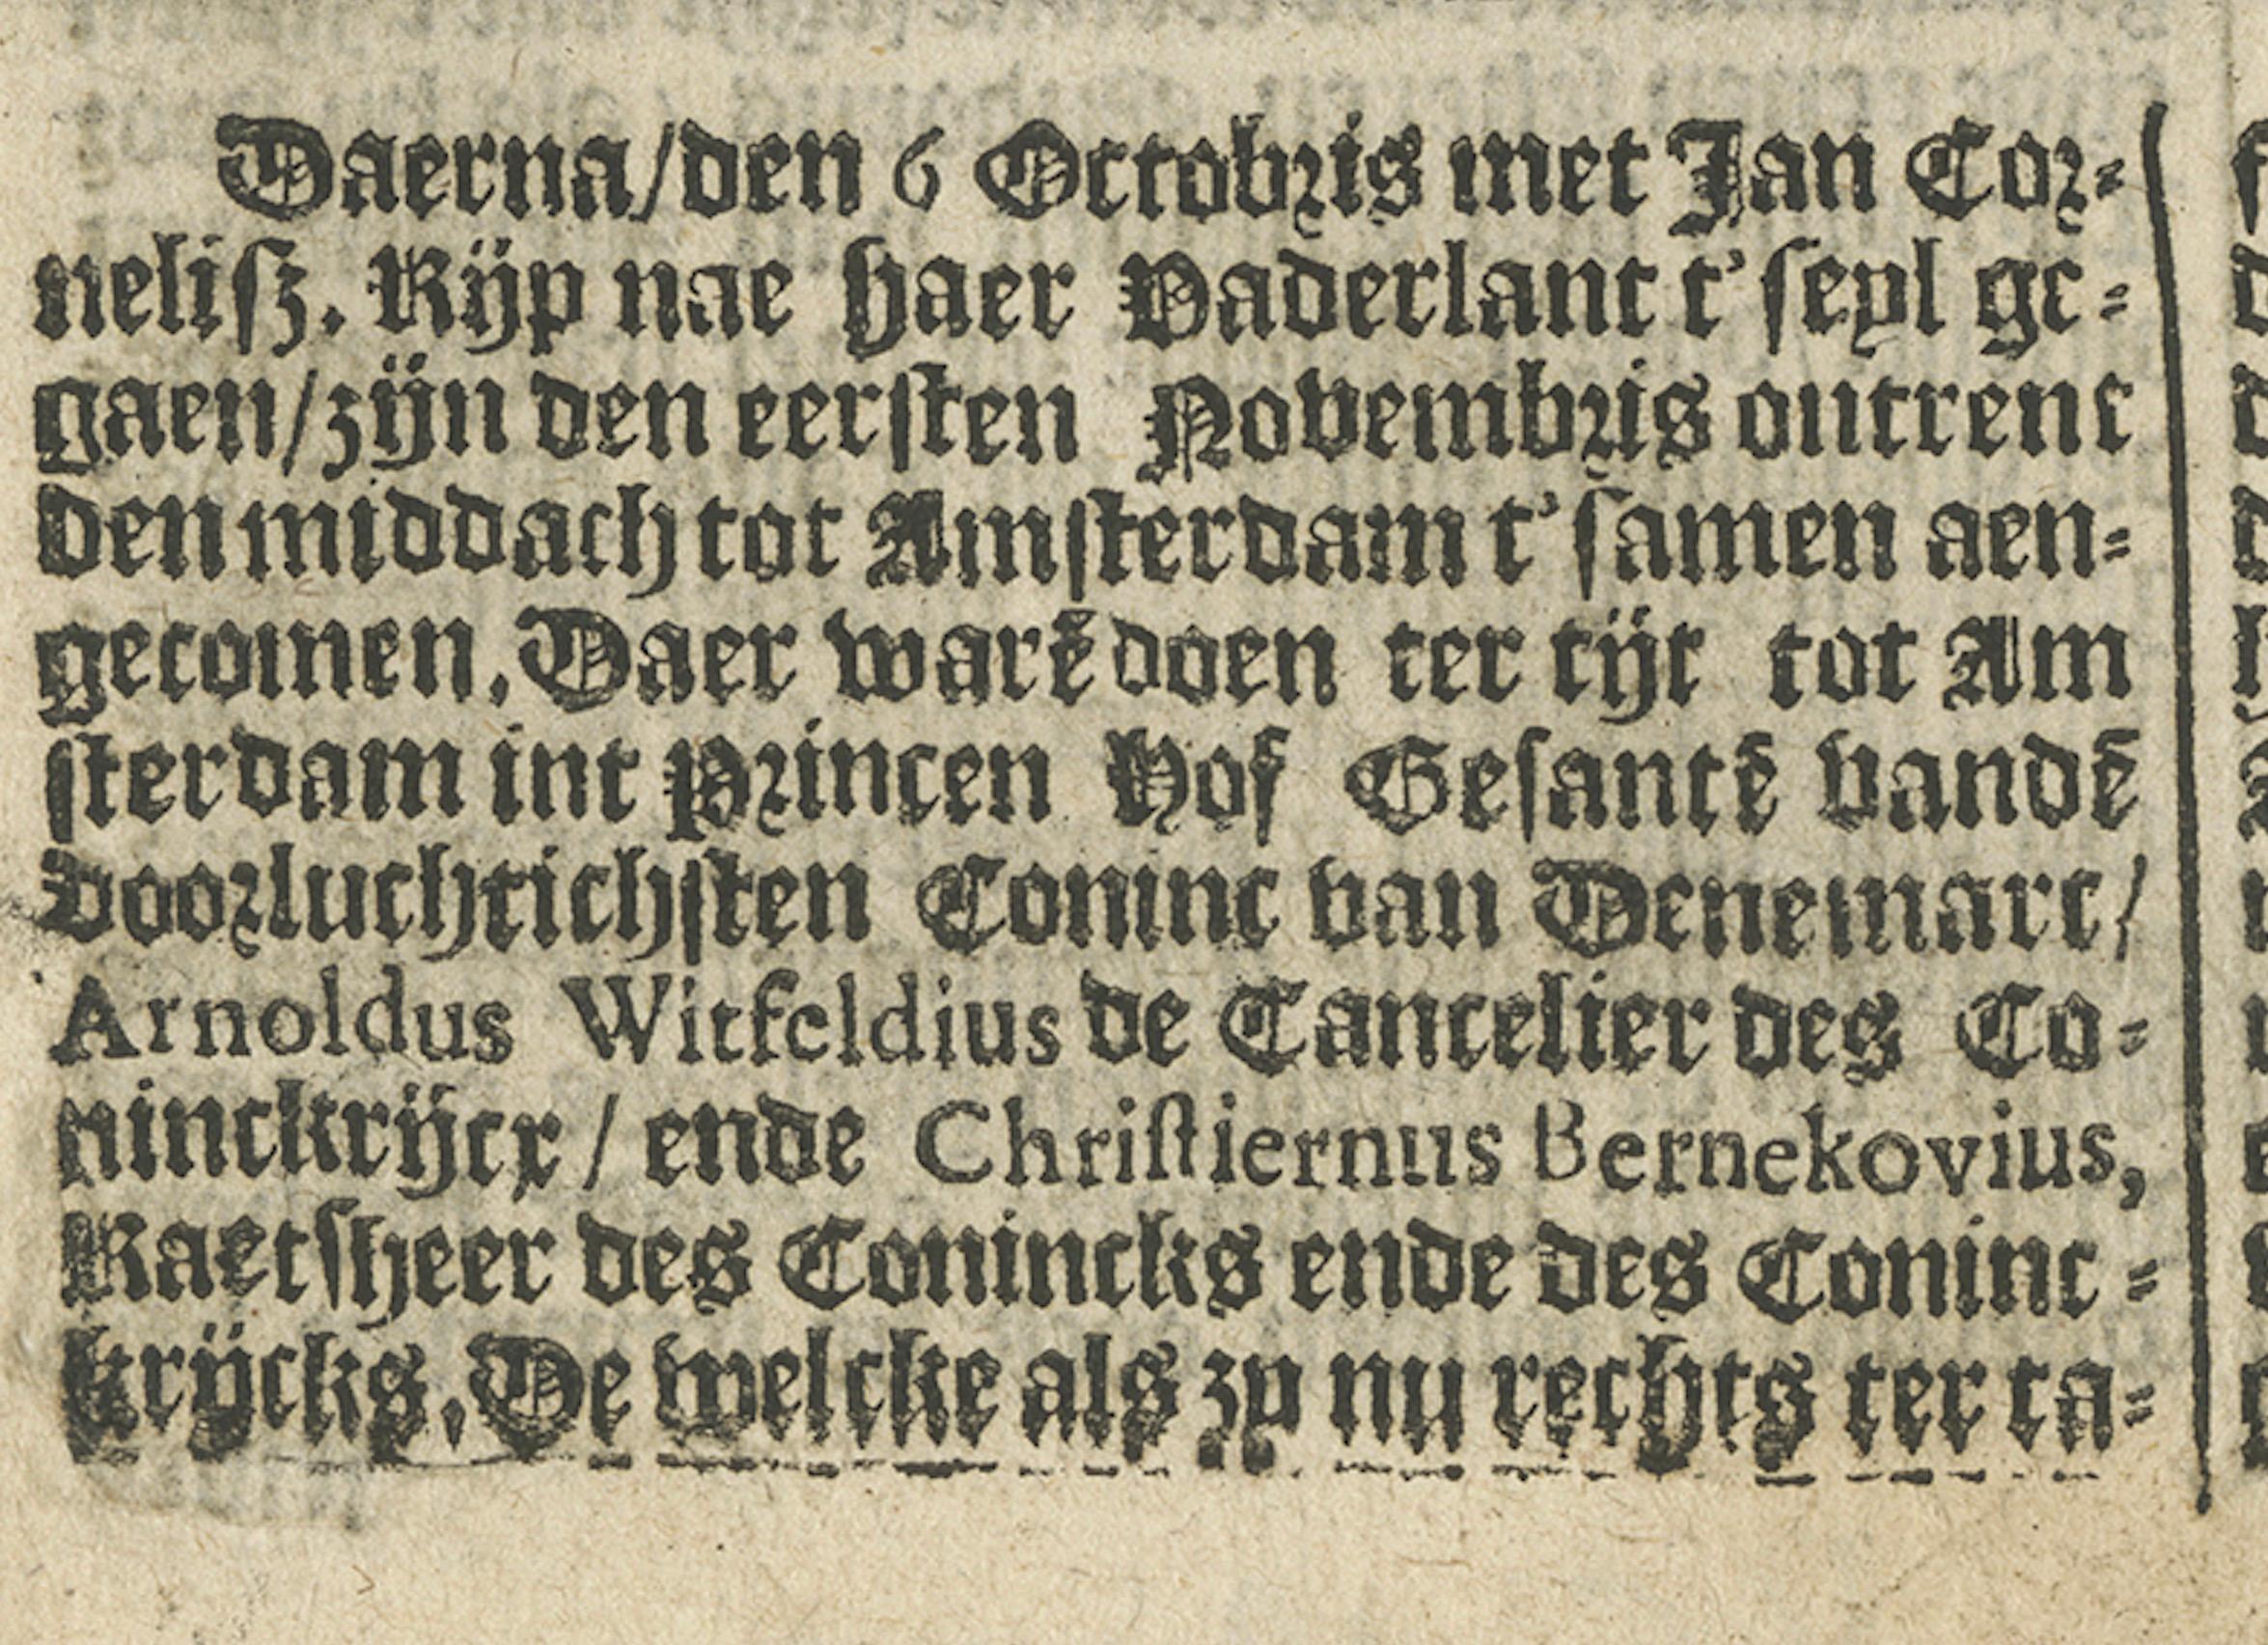 Daerna/den 6 Octobris met Jan Cor-
neliſz. Rijp nae haer Vaderlant t'ſeyl ge-
gaen/zijn den eerſten Novembris ontrent
den middach tot Amſterdam t'ſamen aen-
gecomen. Daer warẽ doen ter tijt tot Am
ſterdam int Princen Hof Geſantẽ vandẽ
doorluchtichſten Coninc van Denemarc/
Arnoldus Witfeldius de Cancelier des Co-
ninckrijcx/ ende Chriſtiernus Bernekovius,
Raetſheer des Conincks ende des Coninc-
krijcks. De welcke als zy nu rechts ter ta-